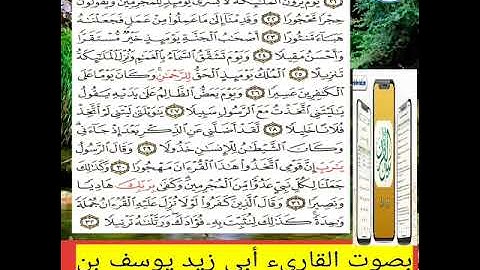 يَوْمَ يَرَوْنَ ٱلْمَلَٰٓئِكَةَ لَا بُشْرَىٰ يَوْمَئِذٍ لِّلْمُجْرِمِينَ وَيَقُولُونَ
حِجْرًا مَّحْجُورًا ٢٢ وَقَدِمْنَآ إِلَىٰ مَا عَمِلُوا۟ مِنْ عَمَلٍ فَجَعَلْنَٰهُ
هَبَآءً مَّنثُورًا ٢٣ أَصْحَٰبُ ٱلْجَنَّةِ يَوْمَئِذٍ خَيْرٌ مُّسْتَقَرًّا
وَأَحْسَنُ مَقِيلًا ٢٤ وَيَوْمَ تَشَقَّقُ ٱلسَّمَآءُ بِٱلْغَمَٰمِ وَنُزِّلَ ٱلْمَلَٰٓئِكَةُ
تَنزِيلًا ٢٥ ٱلْمُلْكُ يَوْمَئِذٍ ٱلْحَقُّ لِلرَّحْمَٰنِ وَكَانَ يَوْمًا عَلَى
ٱلْكَٰفِرِينَ عَسِيرًا ٢٦ وَيَوْمَ يَعَضُّ ٱلظَّالِمُ عَلَىٰ يَدَيْهِ يَقُولُ
يَٰلَيْتَنِى ٱتَّخَذْتُ مَعَ ٱلرَّسُولِ سَبِيلًا ٢٧ يَٰوَيْلَتَىٰ لَيْتَنِى لَمْ أَتَّخِذْ
فُلَانًا خَلِيلًا ٢٨ لَّقَدْ أَضَلَّنِى عَنِ ٱلذِّكْرِ بَعْدَ إِذْ جَآءَنِى
وَكَانَ ٱلشَّيْطَٰنُ لِلْإِنسَٰنِ خَذُولًا ٢٩ وَقَالَ ٱلرَّسُولُ
يَٰرَبِّ إِنَّ قَوْمِى ٱتَّخَذُوا۟ هَٰذَا ٱلْقُرْءَانَ مَهْجُورًا ٣٠ وَكَذَٰلِكَ
جَعَلْنَا لِكُلِّ نَبِىٍّ عَدُوًّا مِّنَ ٱلْمُجْرِمِينَ وَكَفَىٰ بِرَبِّكَ هَادِيًا
وَنَصِيرًا ٣١ وَقَالَ ٱلَّذِينَ كَفَرُوا۟ لَوْلَا نُزِّلَ عَلَيْهِ ٱلْقُرْءَانُ جُمْلَةً
وَٰحِدَةً كَذَٰلِكَ لِنُثَبِّتَ بِهِۦ فُؤَادَكَ وَرَتَّلْنَٰهُ تَرْتِيلًا ٣٢
بصوت القارىء أبي زيد يوسف بن